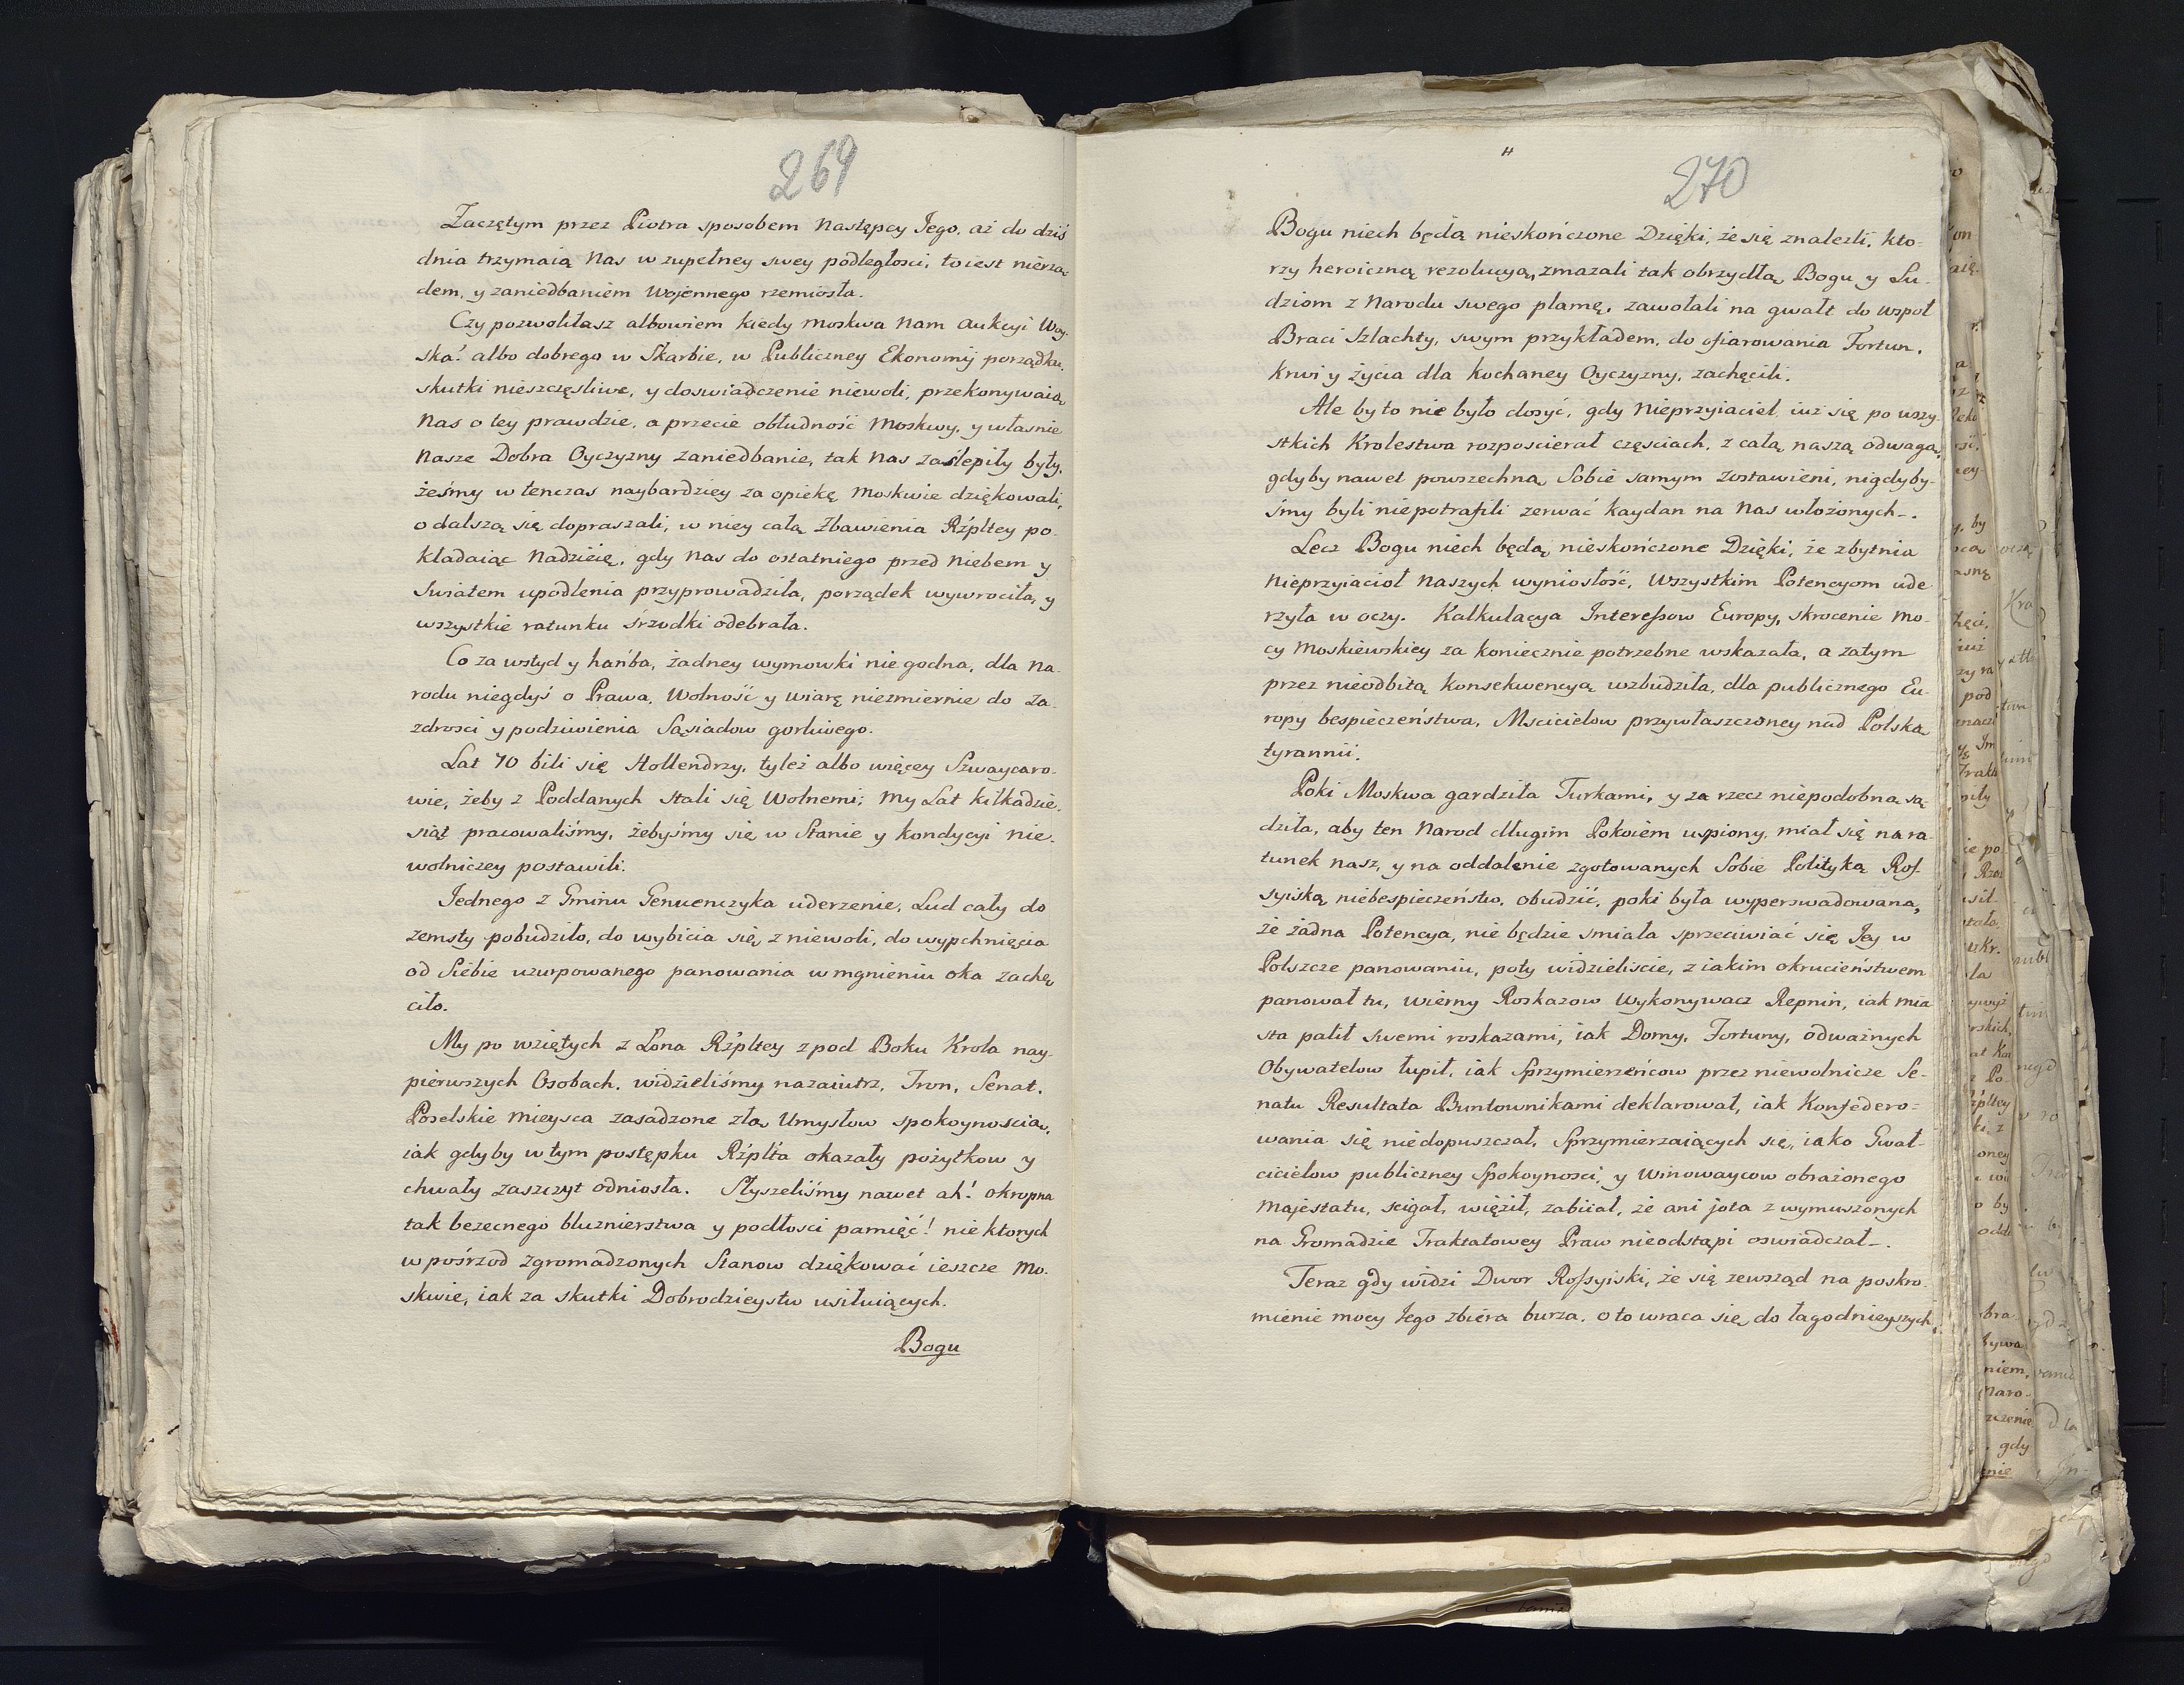 269
Zaczętym przez Piotra sposobem Następcy Jego, aż do dziś
dnia trzymaią Nas w zupełney swey podległosci, toiest nierzą
dem, y zaniedbaniem Wojennego rzemiosła.
Czy pozwoliłasz albowiem kiedy Moskwa Nam Aukcyi Woy-
ska? albo dobrego w Skarbie, w Publiczney Ekonomij porządku.
skutki nieszczęsliwe, y doswiadczenie niewoli, przekonywaią
Nas o tey prawdzie, a przecie obłudność Moskwy, y własnie
Nasze Dobra Oyczyzny zaniedbanie, tak Nas zaślepiły były,
żeśmy w tenczas naybardziey za opiekę Moskwie dziękowali,
o dalszą się dopraszali, w niey całą Zbawienia Rżpltey po-
kładaiąc Nadzieię, gdy Nas do ostatniego przed Niebem y
Swiatem upodlenia przyprowadziła, porządek wywrociła, y
wszystkie ratunku śrzodki odebrała.
Co za wstyd y hańba, żadney wymowki nie godna, dla Na-
rodu niegdyś o Prawa, Wolność y Wiarę niezmiernie do Za-
zdrosci y podziwienia Sąsiadow gorliwego.
Lat 70 bili się Hollendrzy, tyleż albo więcey Szwaycaro-
wie, żeby z Poddanych Stali się Wolnemi; My Lat kilkadzie-
siąt pracowaliśmy, żebyśmy się w Stanie y kondycyi nie-
wolniczey postawili.
Jednego z Gminu Genuenczyka uderzenie, Lud cały do
zemsty pobudziło, do wybicia się z niewoli, do wypchnięcia
od Siebie uzurpowanego panowania w mgnieniu oka zachę
ciło.
My po wziętych z Łona Rżpltey z pod Boku Krola nay-
pierwszych Osobach, widzieliśmy nazaiutrz, Tron, Senat,
Poselskie Mieysca zasadzone złą Umysłow spokoynoscią,
iak gdyby w tym postępku Rżplta okazały pożytkow y
chwały zaszczyt odniosła. Słyszeliśmy nawet ah! okropna
tak bezecnego bluznierstwa y podłosci pamięć! nie ktorych
w pośrzod zgromadzonych Stanow dziękować ieszcze Mo-
skwie, iak za skutki Dobrodzieystw usiłuiących.
Bogu
270
Bogu niech będą nieskończone Dzięki, że się znalezli, kto-
rzy heroiczną rezolucyą, zmazali tak obrzydłą Bogu y Lu-
dziom z Narodu swego plamę, zawołali na gwałt do wspoł
Braci Szlachty, swym przykładem, do ofiarowania Fortun,
krwi y życia dla kochaney Oyczyzny, zachęcili.
Ale by to nie było dosyć, gdy Nieprzyiaciel iuż się po wszy-
stkich Krolestwa rozposcierał częsciach, z całą naszą odwagą,
gdyby nawet powszechną, Sobie samym zostawieni, nigdyby-
śmy byli niepotrafili zerwać kaydan na Nas włożonych.
Lecz Bogu niech będą nieskończone Dzięki, że zbytnia
Nieprzyiacioł Naszych wyniosłość, Wszystkim Potencyom ude
rzyła w oczy. Kalkulacya Interessow Europy, skrocenie Mo-
cy Moskiewskiey za koniecznie potrzebne wskazała, a zatym
przez nieodbitą konsekwencyą wzbudziła, dla publicznego Eu-
ropy bespieczeństwa, Mscicielow przywłaszczoney nad Polską
tyrannii.
Poki Moskwa gardziła Turkami, y za rzecz niepodobną są-
dziła, aby ten Narod długim Pokoiem uspiony, miał się na ra-
tunek nasz, y na oddalenie zgotowanych Sobie Polityką Ros-
syiską niebespieczeństw, obudzić, poki była wyperswadowaną,
że żadna Potencya, nie będzie smiała sprzeciwiać się Jey w
Polszcze panowaniu, poty widzieliscie, z iakim okrucieństwem
panował tu, wierny Roskazow Wykonywacz Repnin, iak Mia
sta palił swemi roskazami, iak Domy, Fortuny, odważnych
Obywatelow łupił, iak Sprzymierzeńcow przez niewolnicze Se-
natu Resultata Buntownikami deklarował, iak Konfedero-
wania się niedopuszczał, Sprzymierzaiących się, iako Gwał-
cicielow publiczney Spokoynosci, y winowaycow obrażonego
Majestatu, scigał, więził, zabiiał, że ani jota z wymuszonych
na Gromadzie Traktatowey Praw nieodstąpi oswiadczał.
Teraz gdy widzi Dwor Rossyiski, że się zewsząd na poskro-
mienie mocy Jego zbiera burza, oto wraca się do łagodnieyszych,